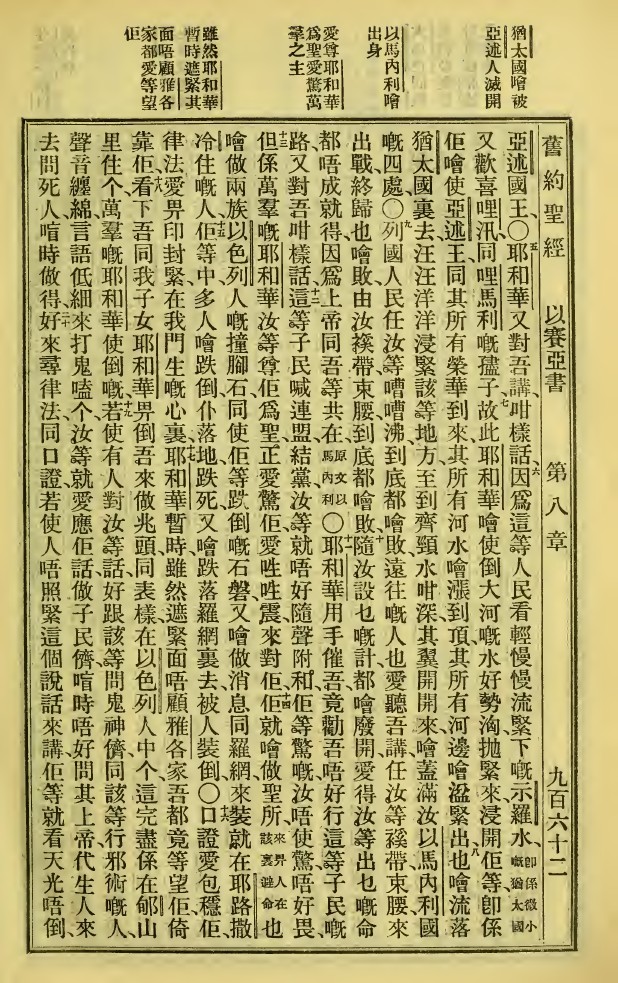 猶太國噲被
亞述人滅開
以馬內利噲
出身
愛尊耶和華
爲聖愛驚萬
羣之主
雖然耶和華
暫時遮緊其
面唔顧雅各
家都愛等望
佢
舊約聖經 以賽亞書 第八章 九百六十二
亞述國王、〇五耶和華又對吾講、咁樣話、六因爲這等人民看輕慢慢流緊下嘅示羅水、卽係微小嘅猶太國
又歡喜哩汛、同哩馬利嘅孻子、七故此耶和華噲使倒大河嘅水好勢洶抛緊來浸開佢等、卽係
佢噲使亞述王同其所有榮華到來、其所有河水噲漲到頂、其所有河邊噲溢緊出、八也噲流落
猶太國裏去、汪汪洋洋浸緊該等地方、至到齊頸水咁深、其翼開開來、噲蓋滿汝以馬內利國
嘅四處〇九列國人民任汝等嘈嘈沸到底都噲敗、遠往嘅人也愛聽吾講、任汝等襏帶束腰來
出戰、終歸也噲敗、由汝襏帶束腰、到底都噲敗、十隨汝設乜嘅計、都噲廢開、愛得汝等出乜嘅命
都唔成就得、因爲上帝同吾等共在、原文以馬內利〇十一耶和華用手催吾、竟勸吾唔好行這等子民嘅
路、又對吾咁樣話、十二這等子民喊連盟結黨、汝等就唔好隨聲附和、佢等驚嘅、汝唔使驚、唔好畏、
十三但係萬羣嘅耶和華、汝等尊佢爲聖、正愛驚佢、愛甡甡震來對佢、十四佢就噲做聖所、來畀人在該裏避命也
噲做兩族以色列人嘅撞腳石、同使佢等跌倒嘅石磐、又噲做消息同羅網、來裝就在耶路撒
冷住嘅人、十五佢等中多人噲跌倒仆落地跌死、又噲跌落羅網裏去、被人裝倒、〇十六口證愛包穩佢、
律法愛畀印封緊在我門生嘅心裏、十七耶和華暫時雖然遮緊面唔顧雅各家、吾都竟等望佢、倚
靠佢、十八看下、吾同我子女、耶和華畀倒吾來做兆頭、同表樣、在以色列人中个、這完盡係在郇山
里住个萬羣嘅耶和華使倒嘅、十九若使有人對汝等話、好跟該等問鬼神儕、同該等行邪術嘅人、
聲音纏綿、言語低細、來打鬼嗑个、汝等就愛應佢話、做子民儕、喧時唔好問其上帝、代生人來
去問死人、喧時做得、二十好來尋律法、同口證、若使人唔照緊這個說話來講、佢等就看天光唔倒、